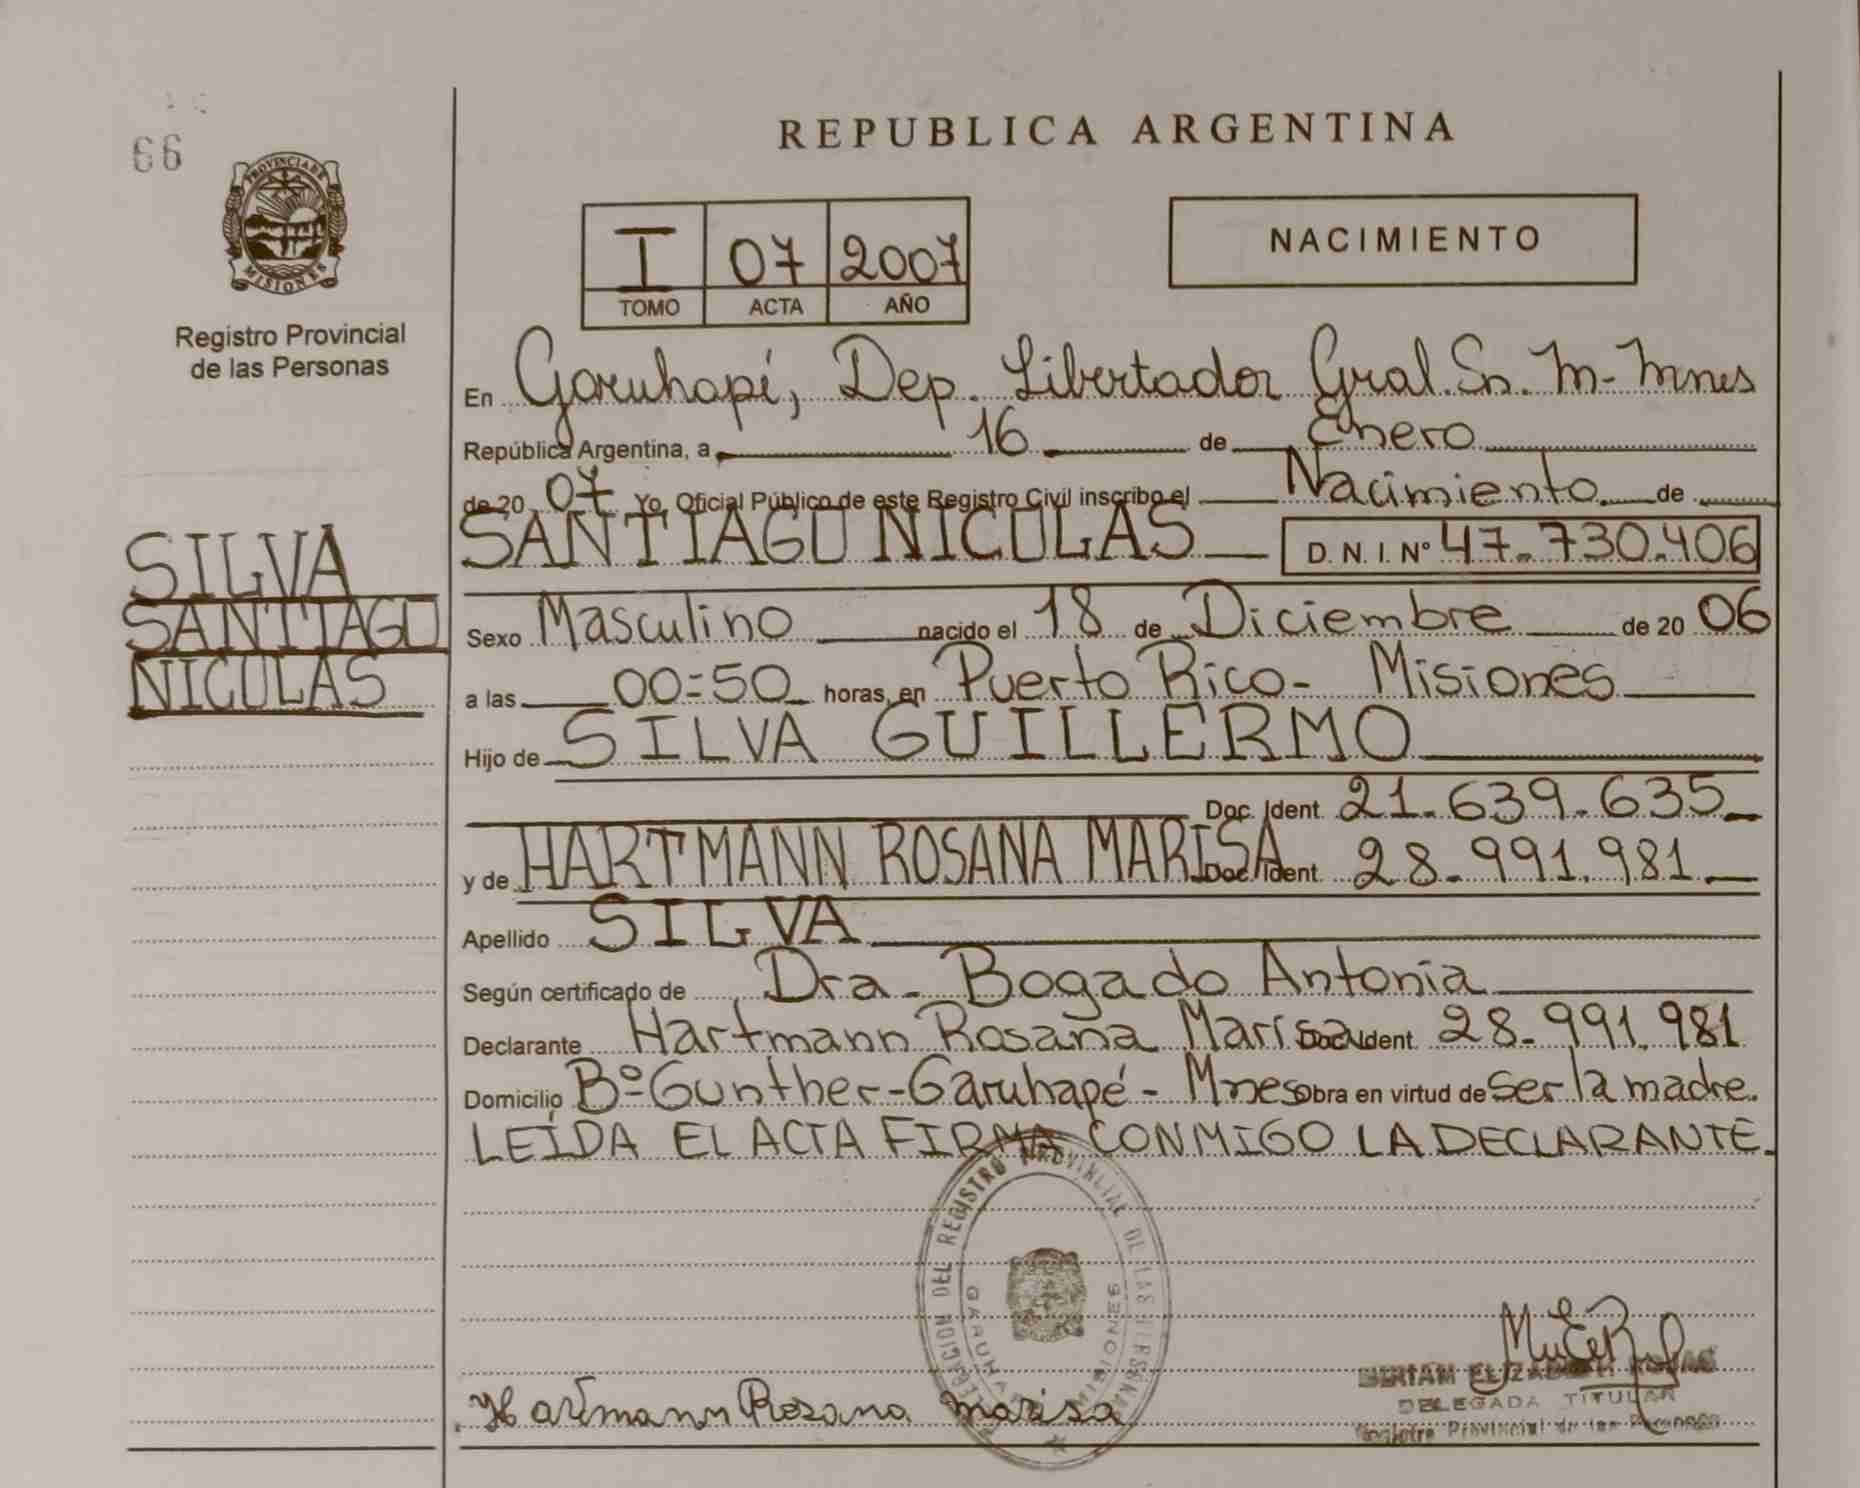 66
PROVINCIA DE
MISIONES
Registro Provincial
de las Personas
SILVA
SANTIAGO
NICOLAS
REPUBLICA ARGENTINA
I 07 2007
TOMO ACTA AÑO
NACIMIENTO
En Garuhapé, Dep. Libertador Gral. Sn. M- Mnes
República Argentina, a 16 de Enero
de 20 07 Yo, Oficial Público de este Registro Civil inscribo el Nacimiento de
SANTIAGO NICOLAS D. N. I. Nº 47.730.406
Sexo Masculino nacido el 18 de Diciembre de 20 06
a las 00:50 horas, en Puerto Rico- Misiones
Hijo de SILVA GUILLERMO
Doc. Ident. 21.639.635
y de HARTMANN ROSANA MARISA Doc. Ident. 28.991.981
Apellido SILVA
Según certificado de Dra. Bogado Antonia
Declarante Hartmann Rosana Marisa Doc. Ident. 28.991.981
Domicilio Bº Gunther-Garuhapé- Mnes obra en virtud de ser la madre.
LEÍDA EL ACTA FIRMA CONMIGO LA DECLARANTE.
DELEGACION DEL REGISTRO PROVINCIAL DE LAS PERSONAS
GARUHAPE MISIONES
Hartmann Rosana Marisa
MIRIAM ELIZABETH ROJAS
DELEGADA TITULAR
Registro Provincial de las Personas